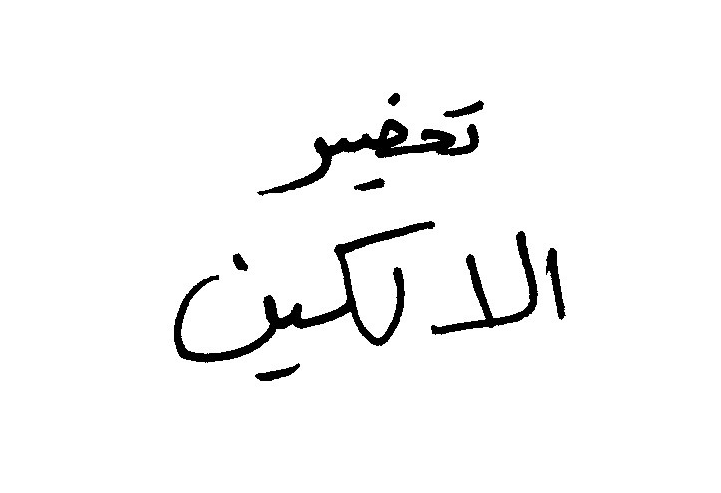 تحضير
الالكين